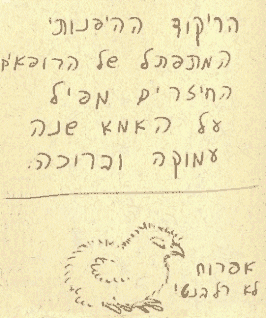 הריקוד ההיפנוטי
המתפתל של הרופאים
החיזרים מפיל
על האמא שנה
עמוקה וברוכה.
אפרוח
לא רלבנטי